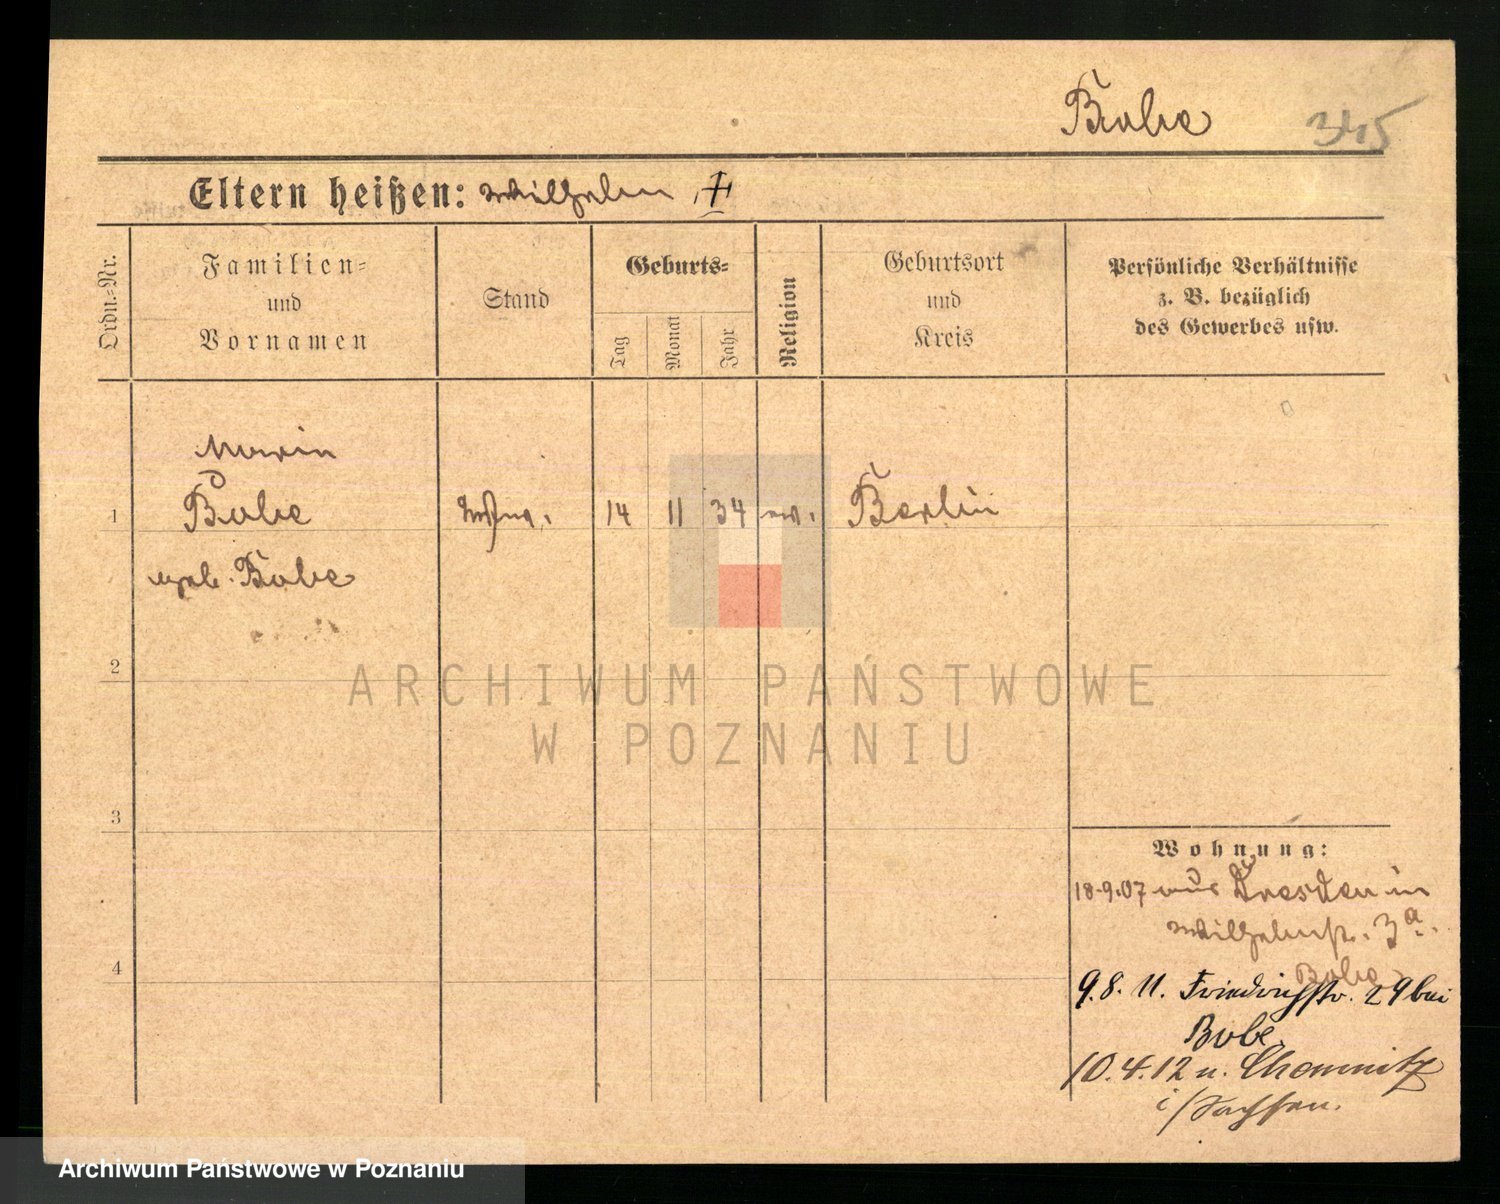 Bube
345
Eltern heißen: Wilhelm ‡
Ordn.-Nr.
Familien-
und
Vornamen
Stand
Geburts-
Tag
Monat
Jahr
Religion
Geburtsort
und
Kreis
Persönliche Verhältnisse
z. B. bezüglich
des Gewerbes usw.
Marie
1 Bube Wwe. 14 11 34 ev. Berlin
geb. Bube
2
3
4
Wohnung:
18.9.07 aus Dresden in
Wilhelmstr. 3a.
Bube
9.8.11. Friedrichstr. 29 bei
Bube.
10.4.12 n. Chemnitz
i/Sachsen.
ARCHIWUM PAŃSTWOWE
W POZNANIU
Archiwum Państwowe w Poznaniu